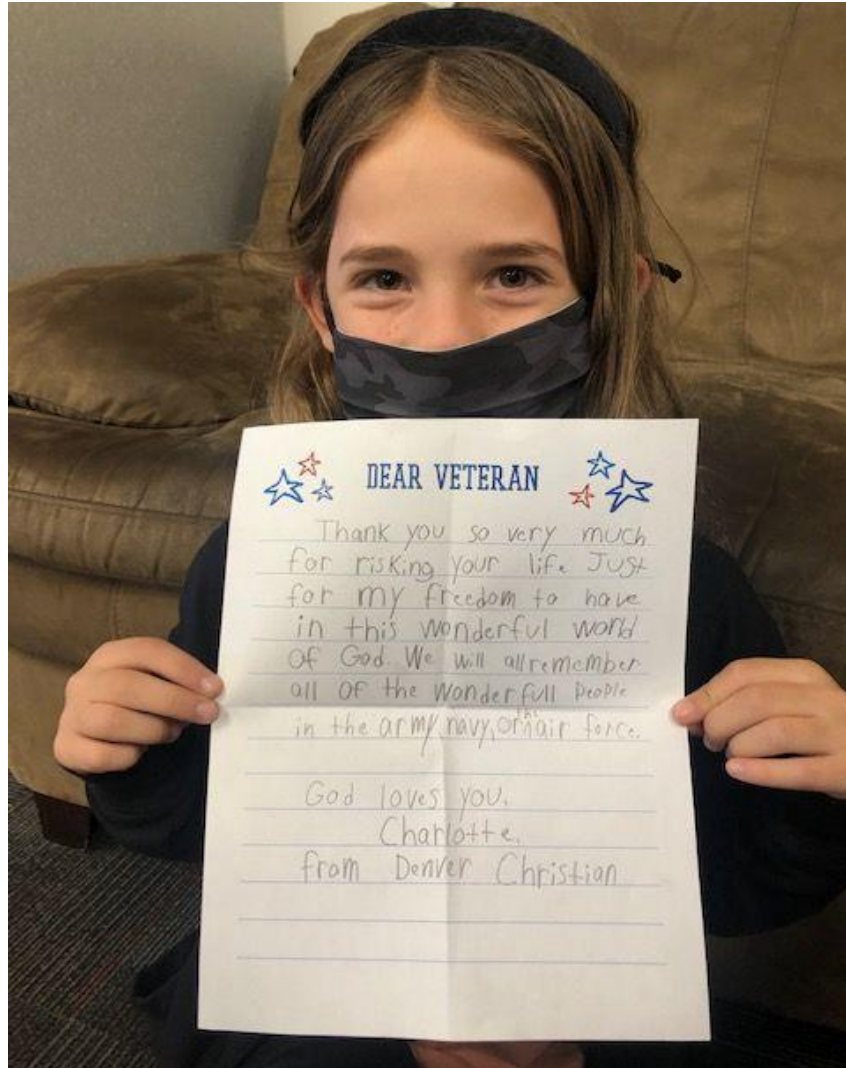 DEAR VETERAN
Thank you so very much
for risking your life Just
for my freedom to have
in this wonderful world
of God. We will all remember
all of the wonderfull people
in the army, navy, or the air force.
God loves you,
Charlotte.
from Denver Christian